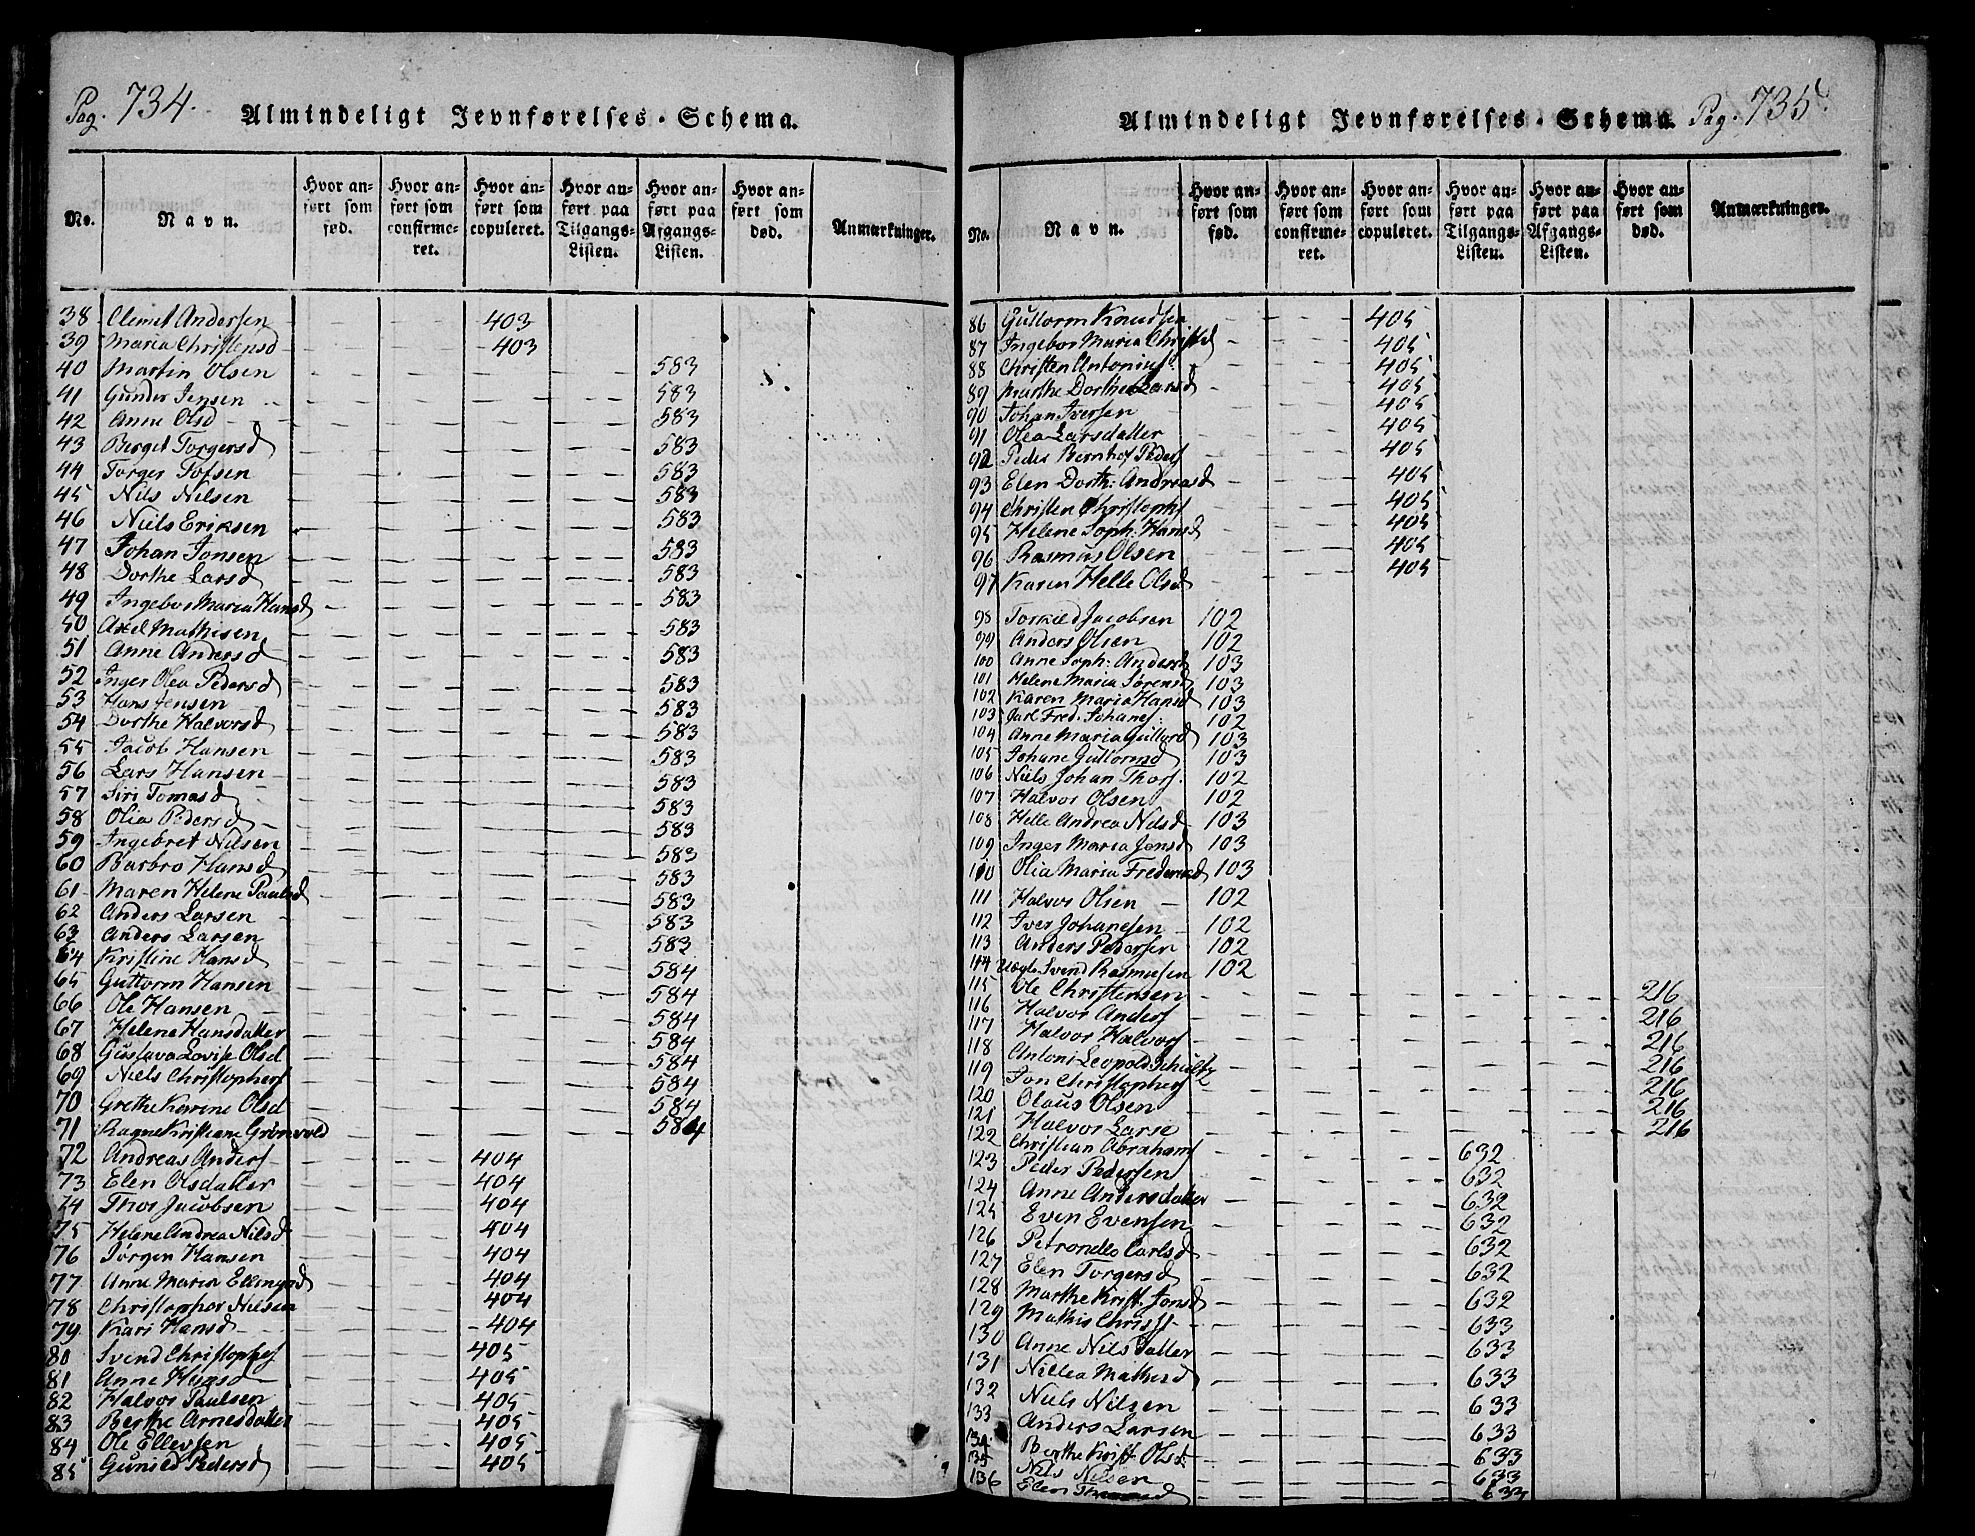 Pag. 734.
Almindeligt Jevnførelses-Schema.
No.
Navn.
Hvor an-
ført som
fød.
Hvor an-
ført som
confirme-
ret.
Hvor an-
ført som
copuleret.
Hvor an-
ført paa
Tilgangs-
Listen.
Hvor an-
ført paa
Afgangs-
Listen.
Hvor an-
ført som
død.
Anmærkninger.
38 Clemit Andersen 403
39 Maria Christensd 403
40 Martin Olsen 583
41 Gunder Jensen 583
42 Anne Olsd 583
43 Berget Torgersd 583
44 Torger Tofsen 583
45 Nils Nilsen 583
46 Niels Eriksen 583
47 Johan Jonsen 583
48 Dorthe Larsd 583
49 Ingebor Maria Hansd 583
50 Axel Mathisen 583
51 Anne Andersd 583
52 Inger Olea Pedersd 583
53 Hans Jensen 583
54 Dorthe Halvorsd 583
55 Jacob Hansen 583
56 Lars Hansen 583
57 Siri Tomasd 583
58 Olia Pedersd 583
59 Ingebret Nilsen 583
60 Barbro Hansd 583
61 Maren Helene Paulsd 583
62 Anders Larsen 583
63 Anders Larsen 583
64 Kristine Hansd 584
65 Guttorm Hansen 584
66 Ole Hansen 584
67 Helene Hansdatter 584
68 Gustava Lovise Olsd 584
69 Niels Christophers 584
70 Grethe Karine Olsd 584
71 Ragne Kristiane Grønvold 584
72 Andreas Anders 404
73 Elen Olsdatter 404
74 Thor Jacobsen 404
75 Helene Andrea Nilsd 404
76 Jørgen Hansen 404
77 Anne Maria Ellingsd 404
78 Christopher Nilsen 404
79 Kari Hansd 404
80 Svend Christophers 405
81 Anne Hansd 405
82 Halvor Paulsen 405
83 Berthe Arnesdatter 405
84 Ole Ellevsen 405
85 Gunild Pedersd 405
Almindeligt Jevnførelses-Schema. Pag. 735
No.
Navn.
Hvor an-
ført som
fød.
Hvor an-
ført som
confirme-
ret.
Hvor an-
ført som
copuleret.
Hvor an-
ført paa
Tilgangs-
Listen.
Hvor an-
ført paa
Afgangs-
Listen.
Hvor an-
ført som
død.
Anmærkninger.
86 Guttorm Knudsen 405
87 Ingebor Maria Christd 405
88 Christen Antonius 405
89 Marthe Dorthe Larsd 405
90 Johan Iversen 405
91 Olea Larsdatter 405
92 Peder Bernhof Peders 405
93 Elen Dorth: Andreasd 405
94 Christen Christophs 405
95 Helene Soph: Hansd 405
96 Rasmus Olsen 405
97 Karen Helle Olsd 405
98 Torkild Jacobsen 102
99 Anders Olsen 102
100 Anne Soph: Andersd 103
101 Helene Maria Sørensd 103
102 Karen Maria Hansd 103
103 Carl Fred. Johanes 102
104 Anne Maria Guttorsd 103
105 Johane Guttormsd 103
106 Niels Johan Thors. 102
107 Halvor Olsen 102
108 Helle Andrea Nilsd 103
109 Inger Maria Jensd 103
110 Olia Maria Frederiksd 103
111 Halvor Olsen 102
112 Iver Johanesen 102
113 Anders Pedersen 102
114 Svend Rasmusen 102
115 Ole Christensen 216
116 Halvor Anders 216
117 Halvor Halvors 216
118 Antoni Leopold Schultz 216
119 Jon Christophers 216
120 Olaus Olsen 216
121 Halvor Larse 216
122 Christian Abrahams 632
123 Peder Pedersen 632
124 Anne Andersdatter 632
125 Even Evensen 632
126 Petronelle Carlsd 632
127 Elen Torgersd 632
128 Marthe Krist. Jonsd 632
129 Mathis Chriss 633
130 Anne Nils Datter 633
131 Nillea Mathisd 633
132 Niels Nilsen 633
133 Anders Larsen 633
134 Berthe Krist Olsd. 633
135 Nils Nilsen 633
136 Elen 633